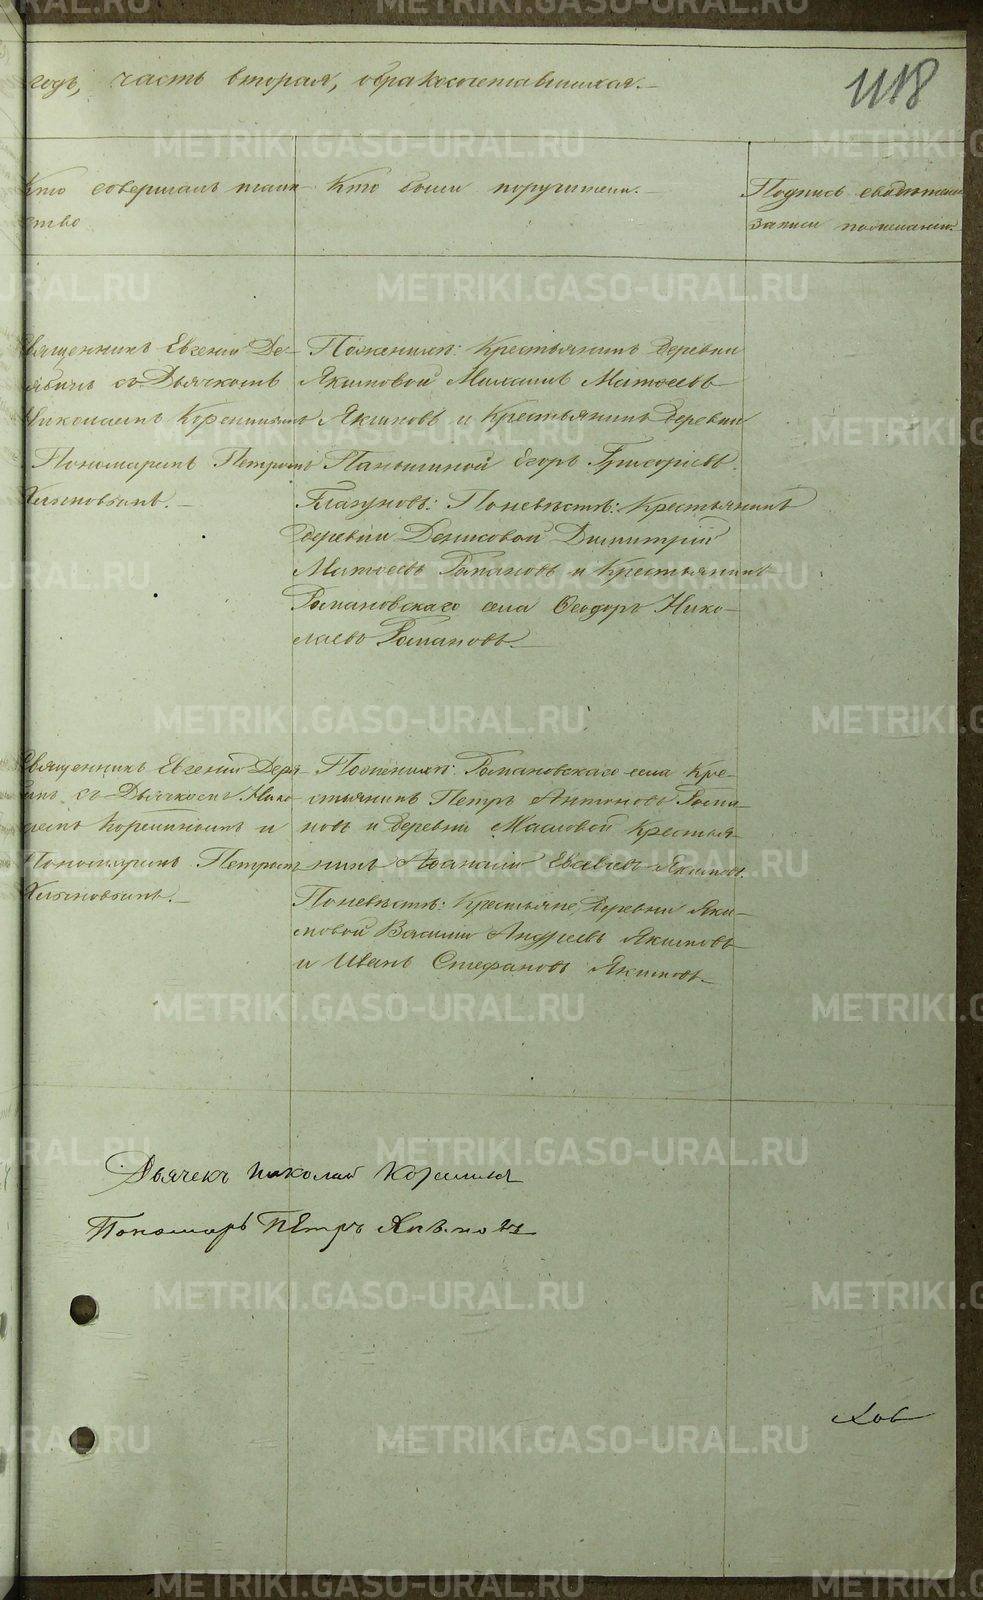 годъ, часть вторая, обракосочетавшихся.
1118
Кто совершалъ таин-
ство
Кто были поручители.
Подпись свидѣтелей
записи по желанію.
Священникъ Евгеній Де-
рябинъ съ Дьячкомъ
Николаемъ Корепинымъ
Пономаремъ Петромъ
Хлыновымъ.
По женихѣ: Крестьянинъ деревни
Якимовой Михаилъ Матѳеевъ
Якимовъ и Крестьянинъ деревни
Паньшиной Егоръ Григорьевъ
Глазуновъ: По невѣстѣ: Крестьянинъ
деревни Денисовой Димитрій
Матѳеевъ Романовъ и Крестьянинъ
Романовскаго села Ѳеодоръ Нико-
лаевъ Романовъ.
Священникъ Евгеній Деря-
бинъ съ Дьячкомъ Нико-
лаемъ Корепинымъ и
Пономаремъ Петромъ
Хлыновымъ.
По женихѣ: Романовскаго села Кре-
стьянинъ Петръ Антоновъ Рома-
новъ и деревни Масловой Крестья-
нинъ Аѳанасій Якимовъ
По невѣстѣ: Крестьяне, деревни Яки-
мовой Василій Андреевъ Якимовъ
и Иванъ Стефановъ Якимовъ.
Дьячекъ Николай Корепинъ
Пономарь Петръ Хлыновъ
METRIKI.GASO-URAL.RU